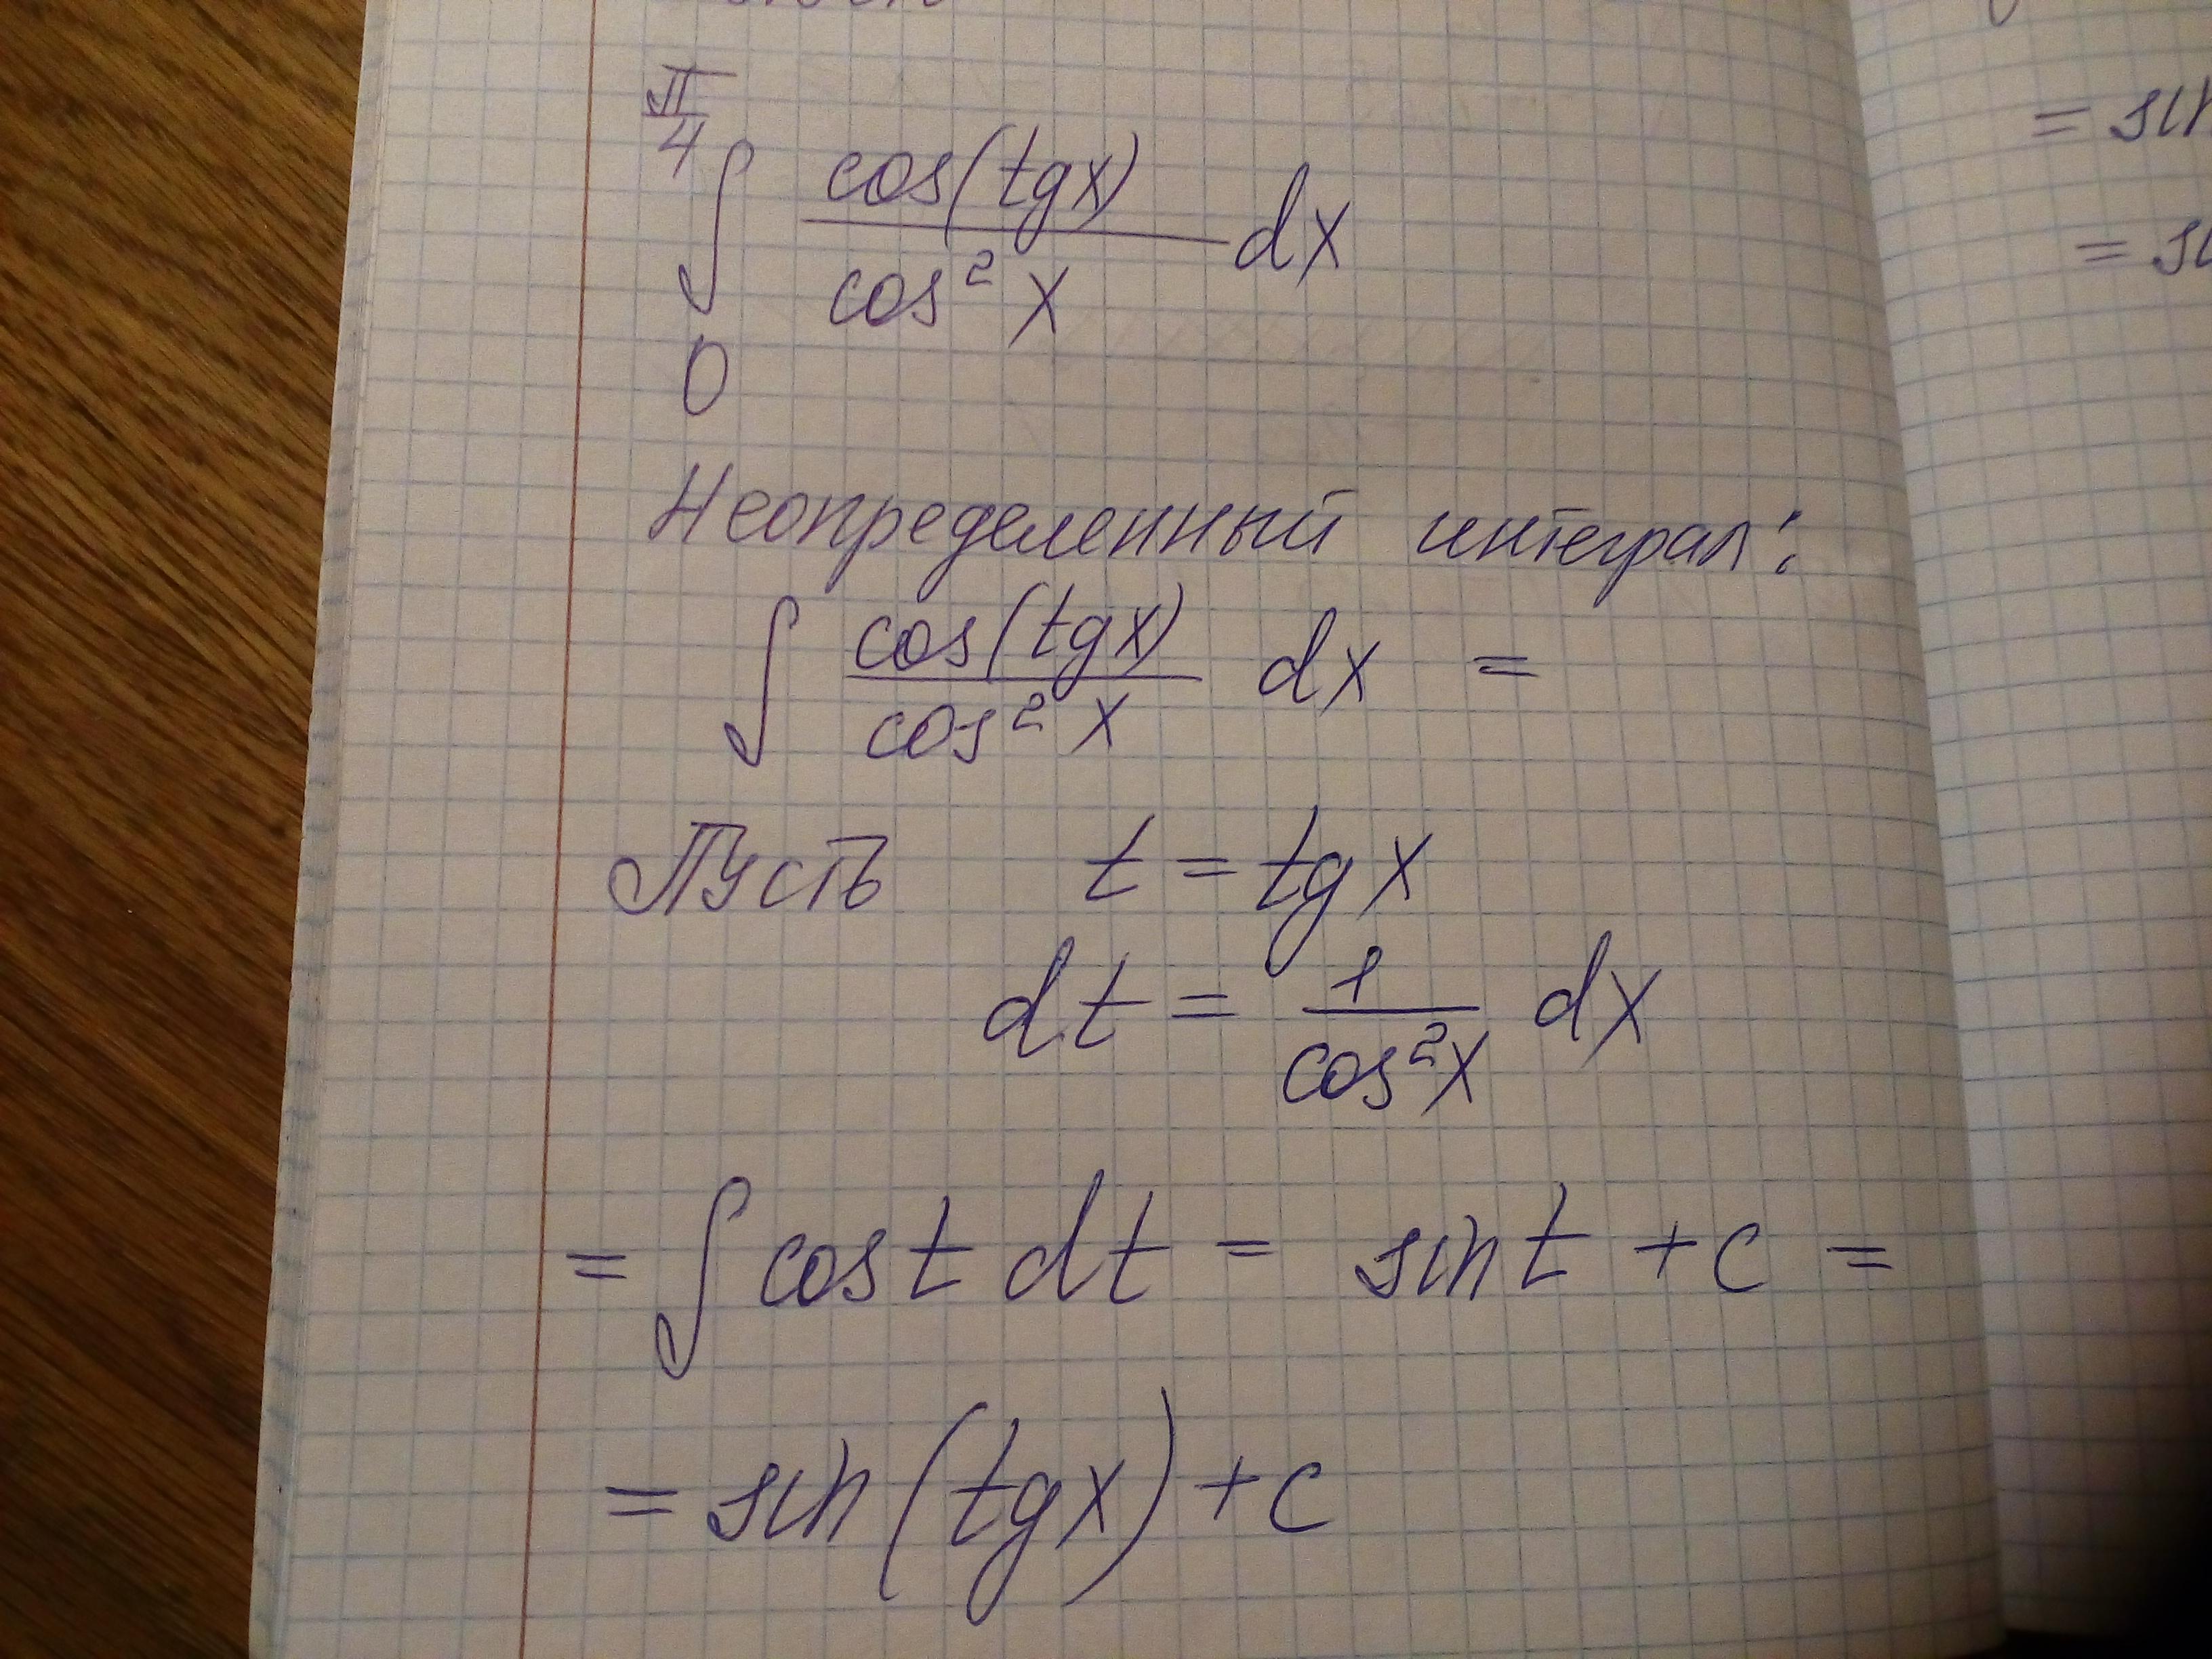 π/4
∫ cos(tgx)/cos²x dx
0
Неопределенный интеграл:
∫ cos(tgx)/cos²x dx =
Пусть t = tgx
dt = 1/cos²x dx
= ∫ cost dt = sint + c =
= sin(tgx) + c
= sin
= si